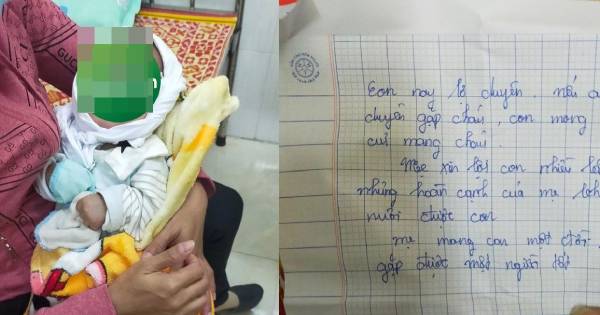 Con nay lỡ chuyến. nếu a
chuyến gặp cháu, con mong
cưu mang cháu.
Mẹ xin lỗi con nhiều lắ
nhưng hoàn cảnh của mẹ
nuôi được con
mẹ mong con một đời
gặp được một người tốt
GUCC